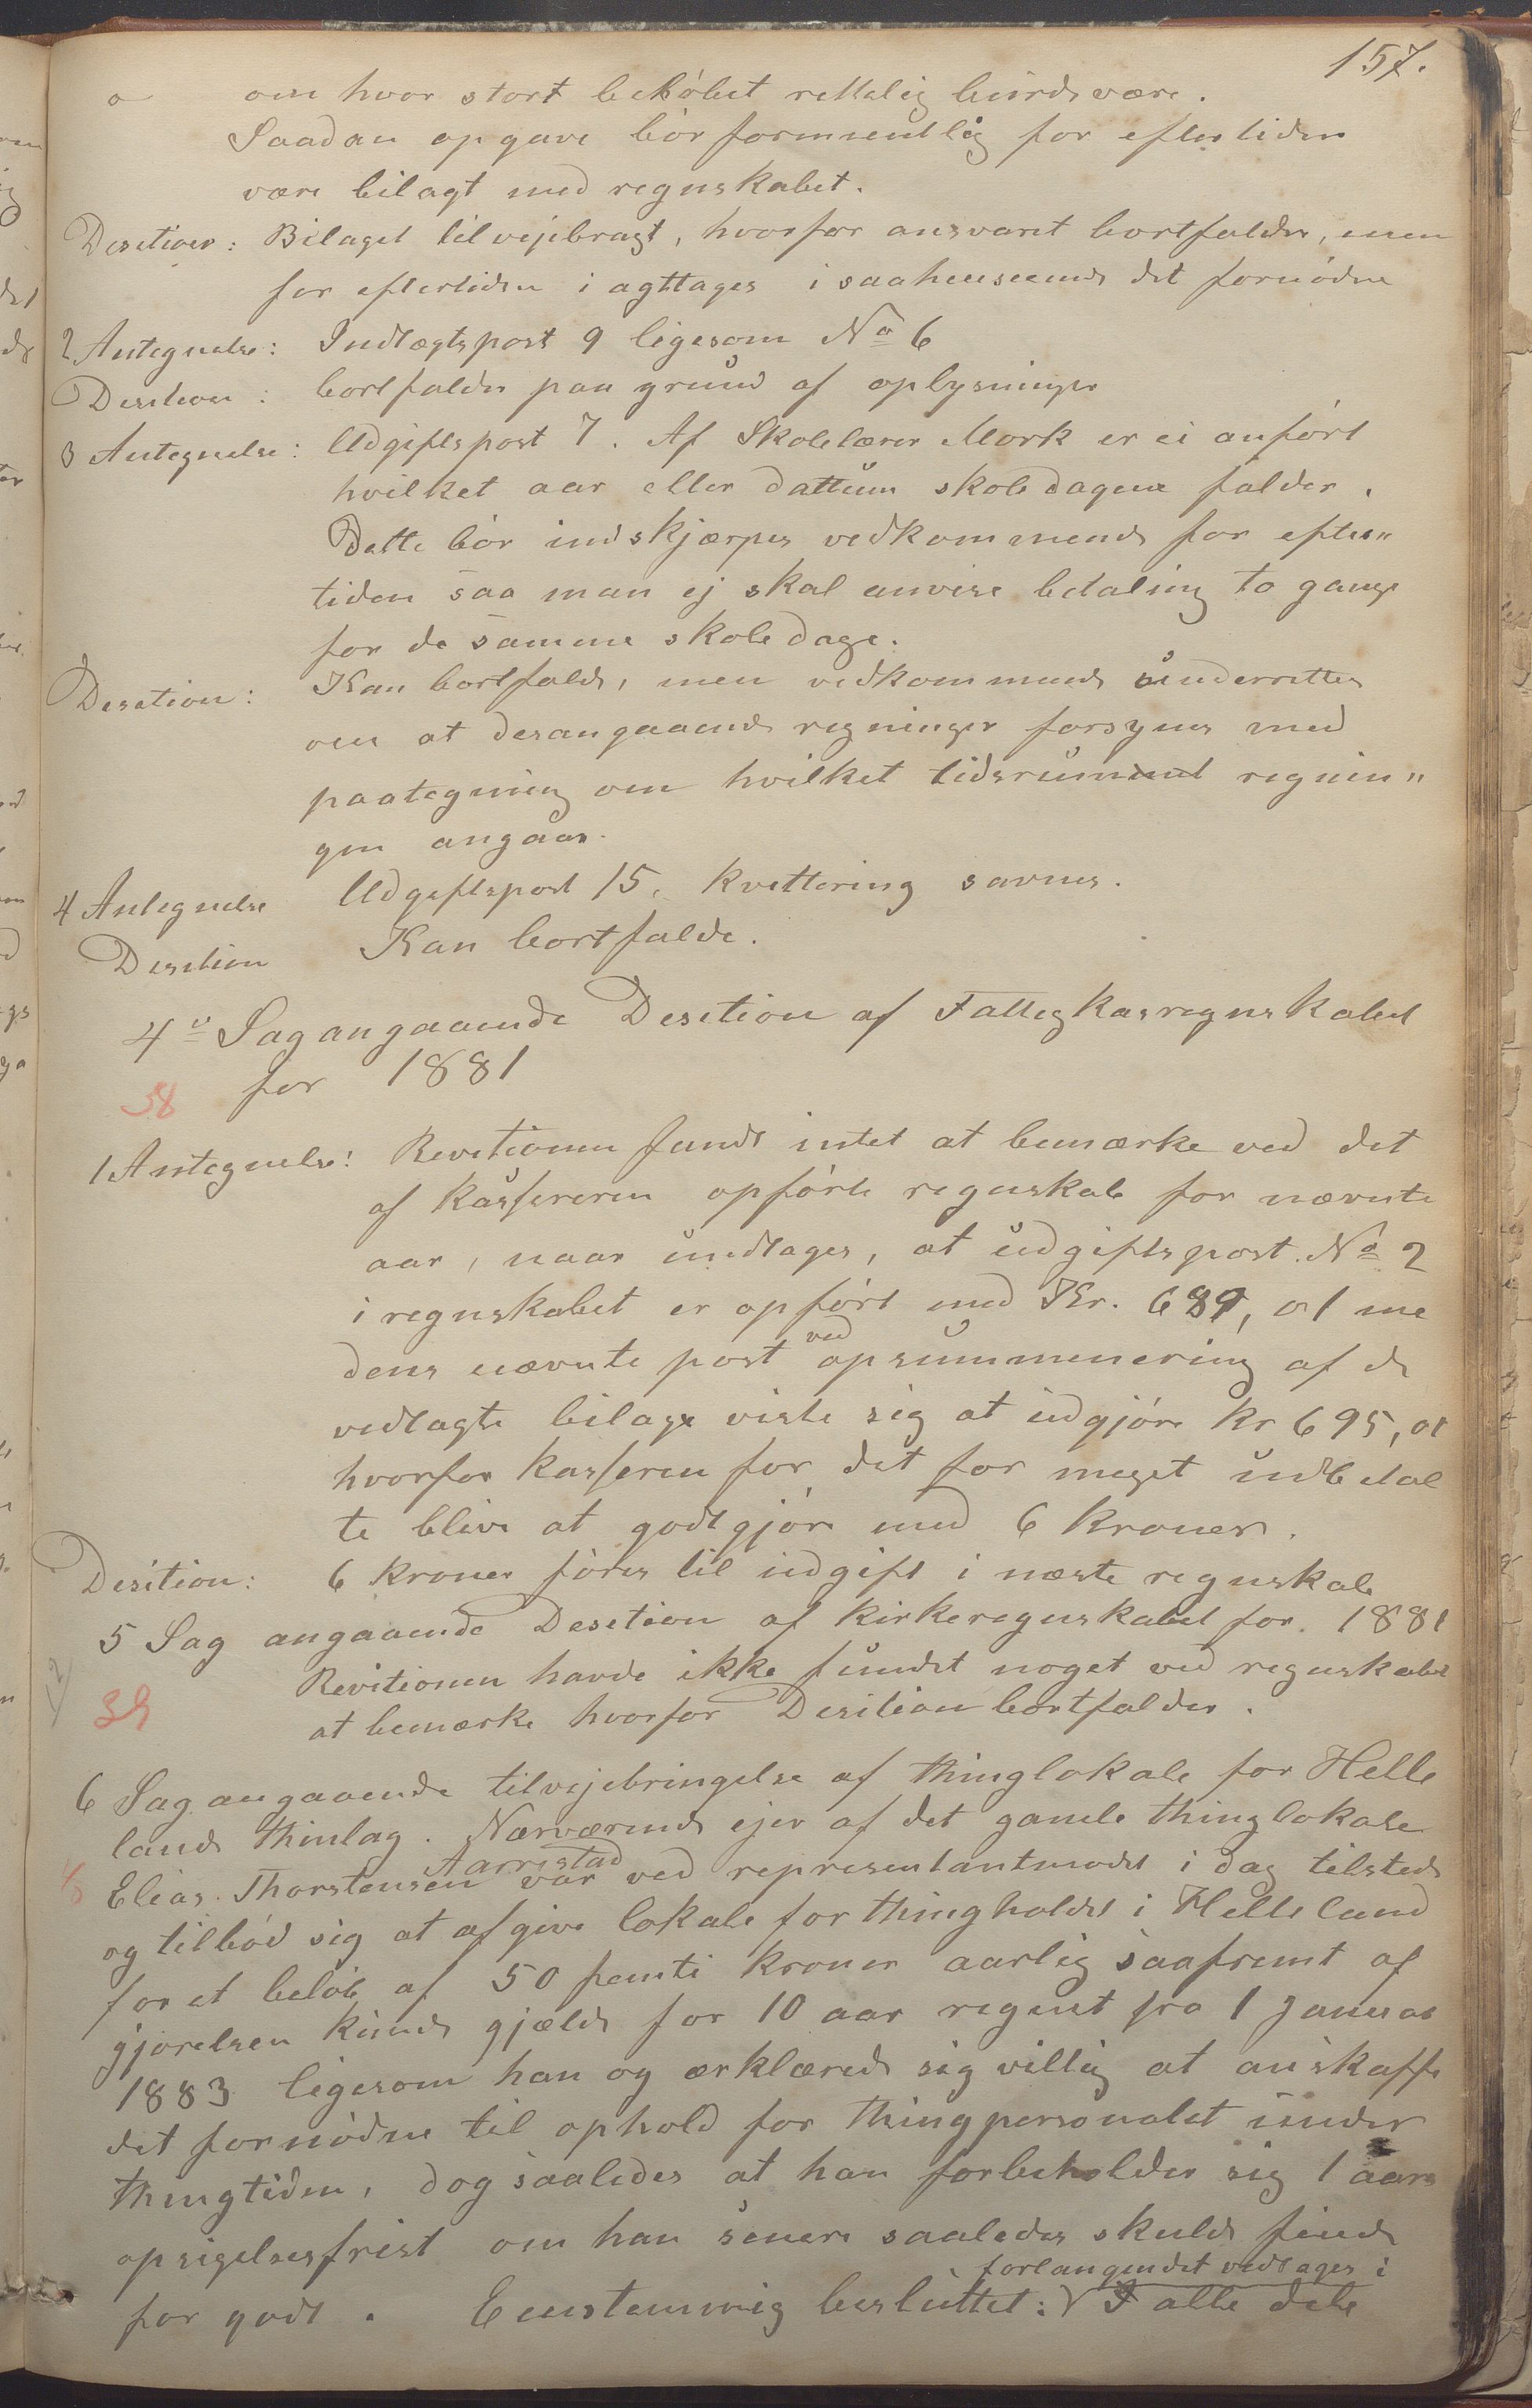 157.
om hvor stort beløbet rettelig burde være.
Saadan opgave bør formentlig for eftertiden
være bilagt med regnskabet.
Desition: Bilaget tilvejebragt, hvorfor ansvaret bortfalder, men
for eftertiden iagttages i saahenseende det fornødne
2 Antegnelse: Indtægtspost 9 ligesom No 6
Desition: bortfalder paa grund af oplysninger
3 Antegnelse: Udgiftspost 7. Af Skolelærer Mork er ei anført
hvilket aar eller dattum skoledagene falder.
Dette bør indskjærpes vedkommende for efter„
tiden saa man ej skal anvise betaling to gange
for de samme skoledage.
Desition: Kan bortfalde, men vedkommende underrettes
om at desangaaende regninger forsynes med
paategning om hvilket tidsrum regnin„
gen angaar.
4 Antegnelse Udgiftspost 15. Kvittering savnes.
Desition Kan bortfalde.
4de Sag angaaende Desition af Fattigkasregnskabet
for 1881
38
1 Antegnelse: Revitionen fandt intet at bemærke ved det
af Kassereren opførte regnskab for nævnte
aar, naar undtages, at udgiftspost No 2
i regnskabet er opført med Kr. 689, 01 me
dens nævnte post ved opsummenering af de
vedlagte bilage viste sig at udgjøre Kr 695, 01
hvorfor kasseren for det for meget udbetal
te blive at godtgjøre med 6 kroner.
Desition: 6 kroner føres til udgift i næste regnskab
5 Sag angaaende Desition af kirkeregnskabet for 1881
Revitionen havde ikke fundet noget ved regnskabet
39
at bemærke hvorfor Desition bortfalder.
6 Sag angaaende tilvejebringelse af thinglokale for Helle
lands thinlag. Nærværende ejer af det gamle thinglokale
Elias Thorstensen Aarrestad var ved representantmødet i dag tilstede
og tilbød sig at afgive lokale for thingholdet i Helleland
for et beløb af 50 femti kroner aarlig saafremt af
gjørelsen kunde gjælde for 10 aar regnet fra 1 Januar
1883 ligesom han og erklærede sig villig at anskaffe
det fornødne til ophold for thingpersonalet under
thingtiden, dog saaledes at han forbeholder sig 1 aars
opsigelsesfrist om han senere saaledes skulde finde
forlangendet vedtages i
for godt. Eenstemmig besluttet: I alle dele